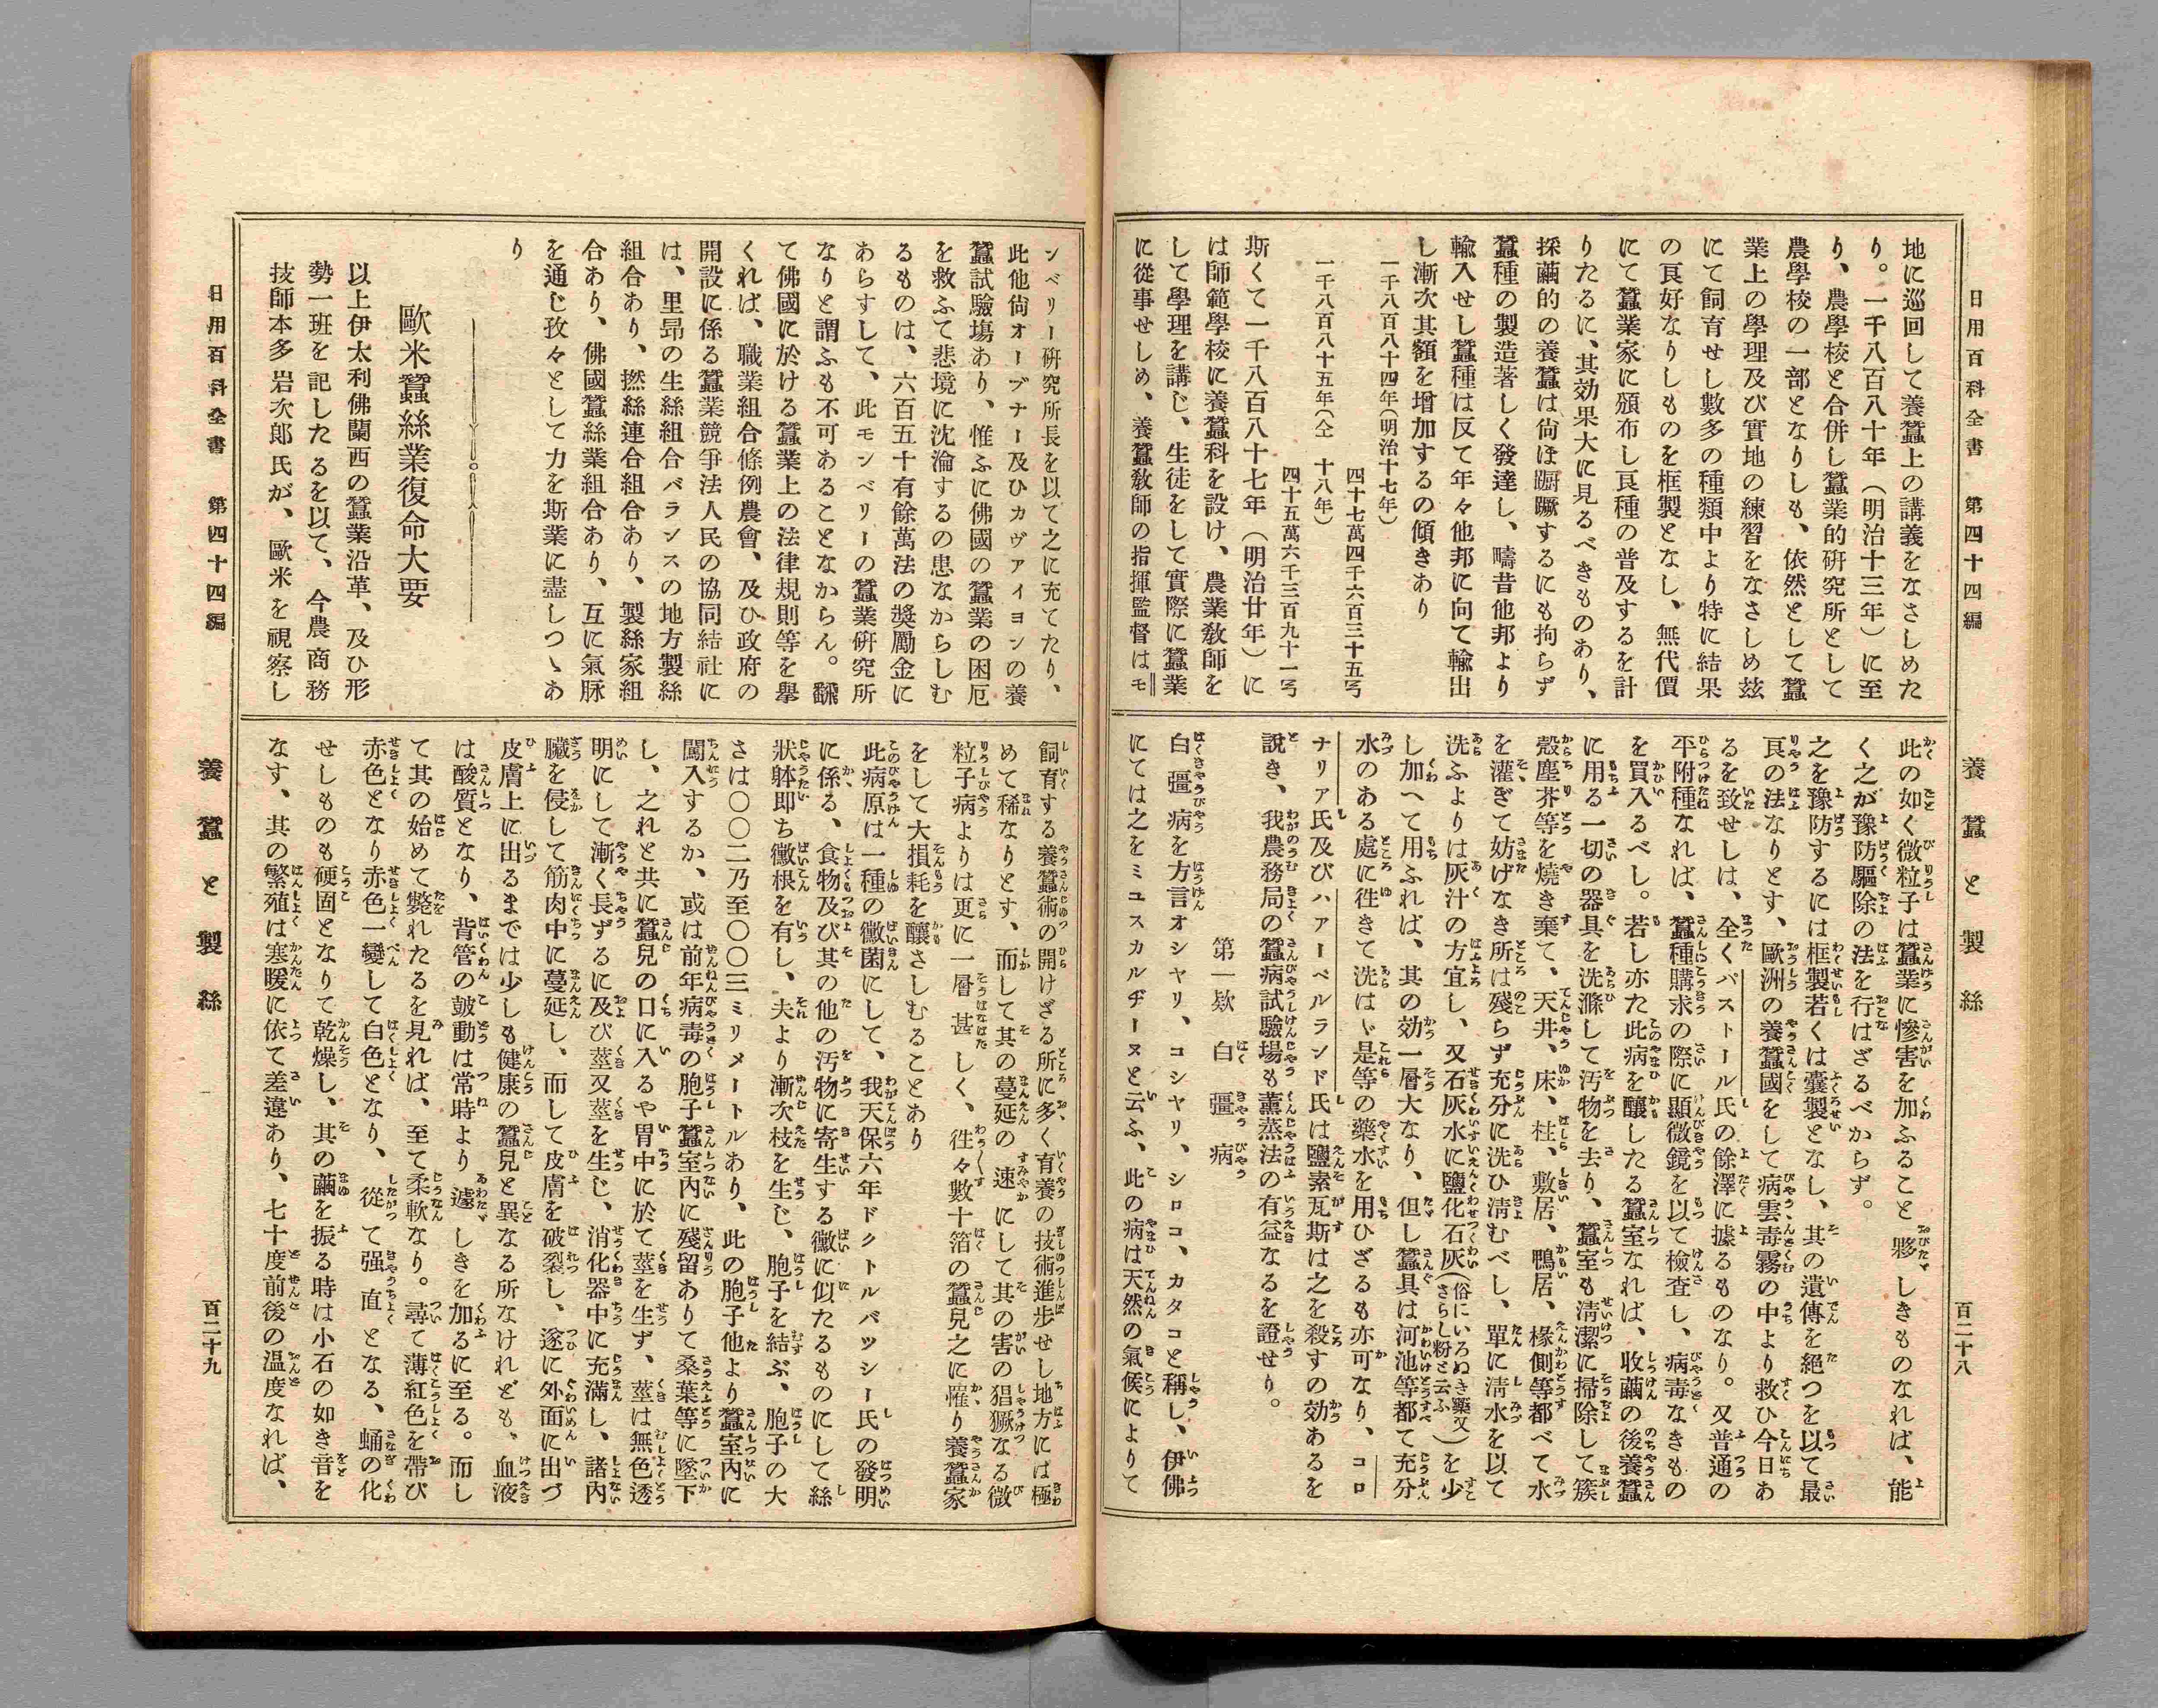 日用百科全書　第四十四編　養蠶と製絲　百二十八
地に巡回して養蠶上の講義をなさしめた
り。一千八百八十年（明治十三年）に至
り、農學校と合併し蠶業的硏究所として
農學校の一部となりしも、依然として蠶
業上の學理及び實地の練習をなさしめ玆
にて飼育せし數多の種類中より特に結果
の良好なりしものを框製となし、無代價
にて蠶業家に頒布し良種の普及するを計
りたるに、其効果大に見るべきものあり、
採繭的の養蠶は尙ほ蹰蹶するにも拘らず
蠶種の製造著しく發達し、疇昔他邦より
輸入せし蠶種は反て年々他邦に向て輸出
し漸次其額を增加するの傾きあり
一千八百八十四年（明治十七年）
四十七萬四千六百三十五弓
一千八百八十五年（仝　十八年）
四十五萬六千三百九十一弓
斯くて一千八百八十七年（明治廿年）に
は師範學校に養蠶科を設け、農業敎師を
して學理を講じ、生徒をして實際に蠶業
に從事せしめ、養蠶敎師の指揮監督はモ
此の如く微粒子は蠶業に慘害を加ふること夥しきものなれば、能
く之が豫防驅除の法を行はざるべからず。
之を豫防するには框製若くは囊製となし、其の遺傳を絕つを以て最
良の法なりとす、歐洲の養蠶國をして病雲毒霧の中より救ひ今日あ
るを致せしは、全くパストール氏の餘澤に據るものなり。又普通の
平附種なれば、蠶種購求の際に顯微鏡を以て檢査し、病毒なきもの
を買入るべし。若し亦た此病を釀したる蠶室なれば、收繭の後養蠶
に用る一切の器具を洗滌して汚物を去り、蠶室も淸潔に掃除して簇
殼塵芥等を燒き棄て、天井、床、柱、敷居、鴨居、椽側等都べて水
を灌ぎて妨げなき所は殘らず充分に洗ひ淸むべし、單に淸水を以て
洗ふよりは灰汁の方宜し、又石灰水に鹽化石灰（俗にいろぬき藥又さらし粉と云ふ）を少
し加へて用ふれば、其の効一層大なり、但し蠶具は河池等都て充分
水のある處に徃きて洗はゞ是等の藥水を用ひざるも亦可なり、コロ
ナリア氏及びハアーベルランド氏は鹽素瓦斯は之を殺すの効あるを
說き、我農務局の蠶病試驗場も薰蒸法の有益なるを證せり。
第一欵　白彊病
白彊病を方言オシヤリ、コシヤリ、シロコ、カタコと稱し、伊佛
にては之をミユスカルヂーヌと云ふ、此の病は天然の氣候によりて
ンペリー硏究所長を以て之に充てたり、
此他尙オーブナー及ひカヴアイヨンの養
蠶試驗塲あり、惟ふに佛國の蠶業の困厄
を救ふて悲境に沈淪するの患なからしむ
るものは、六百五十有餘萬法の奬勵金に
あらすして、此モンペリーの蠶業硏究所
なりと謂ふも不可あることなからん。飜
て佛國に於ける蠶業上の法律規則等を擧
くれば、職業組合條例農會、及ひ政府の
開設に係る蠶業競爭法人民の協同結社に
は、里昂の生絲組合バランスの地方製絲
組合あり、撚絲連合組合あり、製絲家組
合あり、佛國蠶絲業組合あり、互に氣脉
を通じ孜々として力を斯業に盡しつゝあ
り
歐米蠶絲業復命大要
以上伊太利佛蘭西の蠶業沿革、及ひ形
勢一班を記したるを以て、今農商務
技師本多岩次郎氏が、歐米を視察し
飼育する養蠶術の開けざる所に多く有養の技術進步せし地方には極
めて稀なりとす、而して其の蔓延の速にして其の害の猖獗なる微
粒子病よりは更に一層甚しく、徃々數十箔の蠶兒之に罹り養蠶家
をして大損耗を釀さしむることあり
此病原は一種の黴菌にして、我天保六年ドクトルバツシー氏の發明
に係る、食物及び其の他の汚物に寄生する黴に似たるものにして絲
狀躰即ち黴根を有し、夫より漸次枝を生じ、胞子を結ぶ、胞子の大
さは〇〇二乃至〇〇三ミリメートルあり、此の胞子他より蠶室內に
闖入するか、或は前年病毒の胞子蠶室內に殘留ありて桑葉等に墜下
し、之れと共に蠶兒の口に入るや胃中に於て莖を生ず、莖は無色透
明にして漸く長ずるに及び莖又莖を生じ、消化器中に充滿し、諸內
臟を侵して筋肉中に蔓延し、而して皮膚を破裂し、遂に外面に出づ
皮膚上に出るまでは少しも健康の蠶兒と異なる所なけれども、血液
は酸質となり、背管の皷動は常時より遽しきを加るに至る。而し
て其の始めて斃れたるを見れば、至て柔軟なり。尋て薄紅色を帶び
赤色となり赤色一變して白色となり、從て强直となる、蛹の化
せしものも硬固となりて乾燥し、其の繭を振る時は小石の如き音を
なす、其の繁殖は寒暖に依て差違あり、七十度前後の溫度なれば、
日用百科全書　第四十四編　養蠶と製絲　百二十九